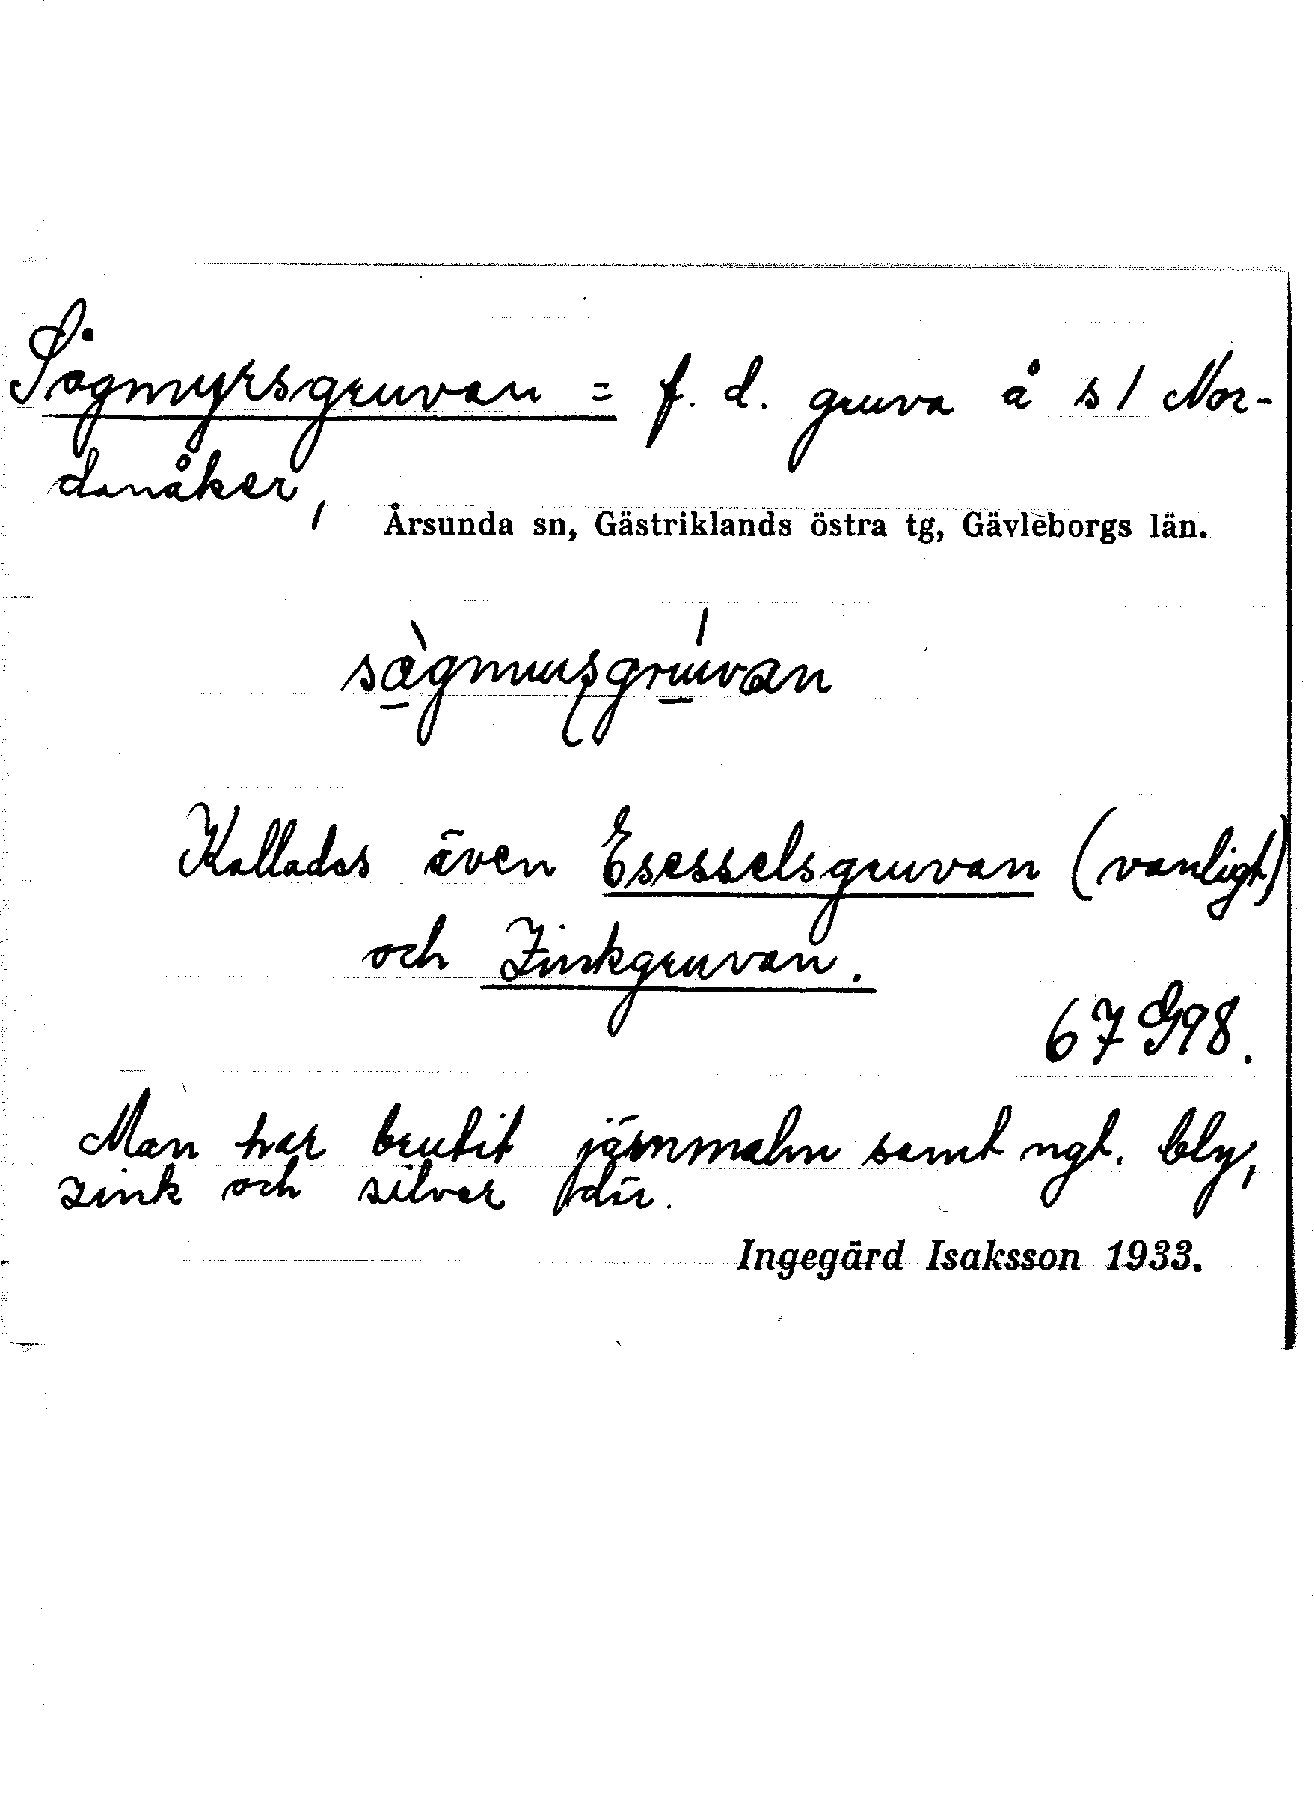 Sågmyrsgruvan = f. d. gruva å s/ Nor-
danåker,
Årsunda sn, Gästriklands östra tg, Gävleborgs län.
Kallades även Esesselsgruvan (vanligt)
och Zinkgruvan.
67 G98.
Man har brutit järnmalm samt ngt. bly,
zink och silver där.
Ingegärd Isaksson 1933.